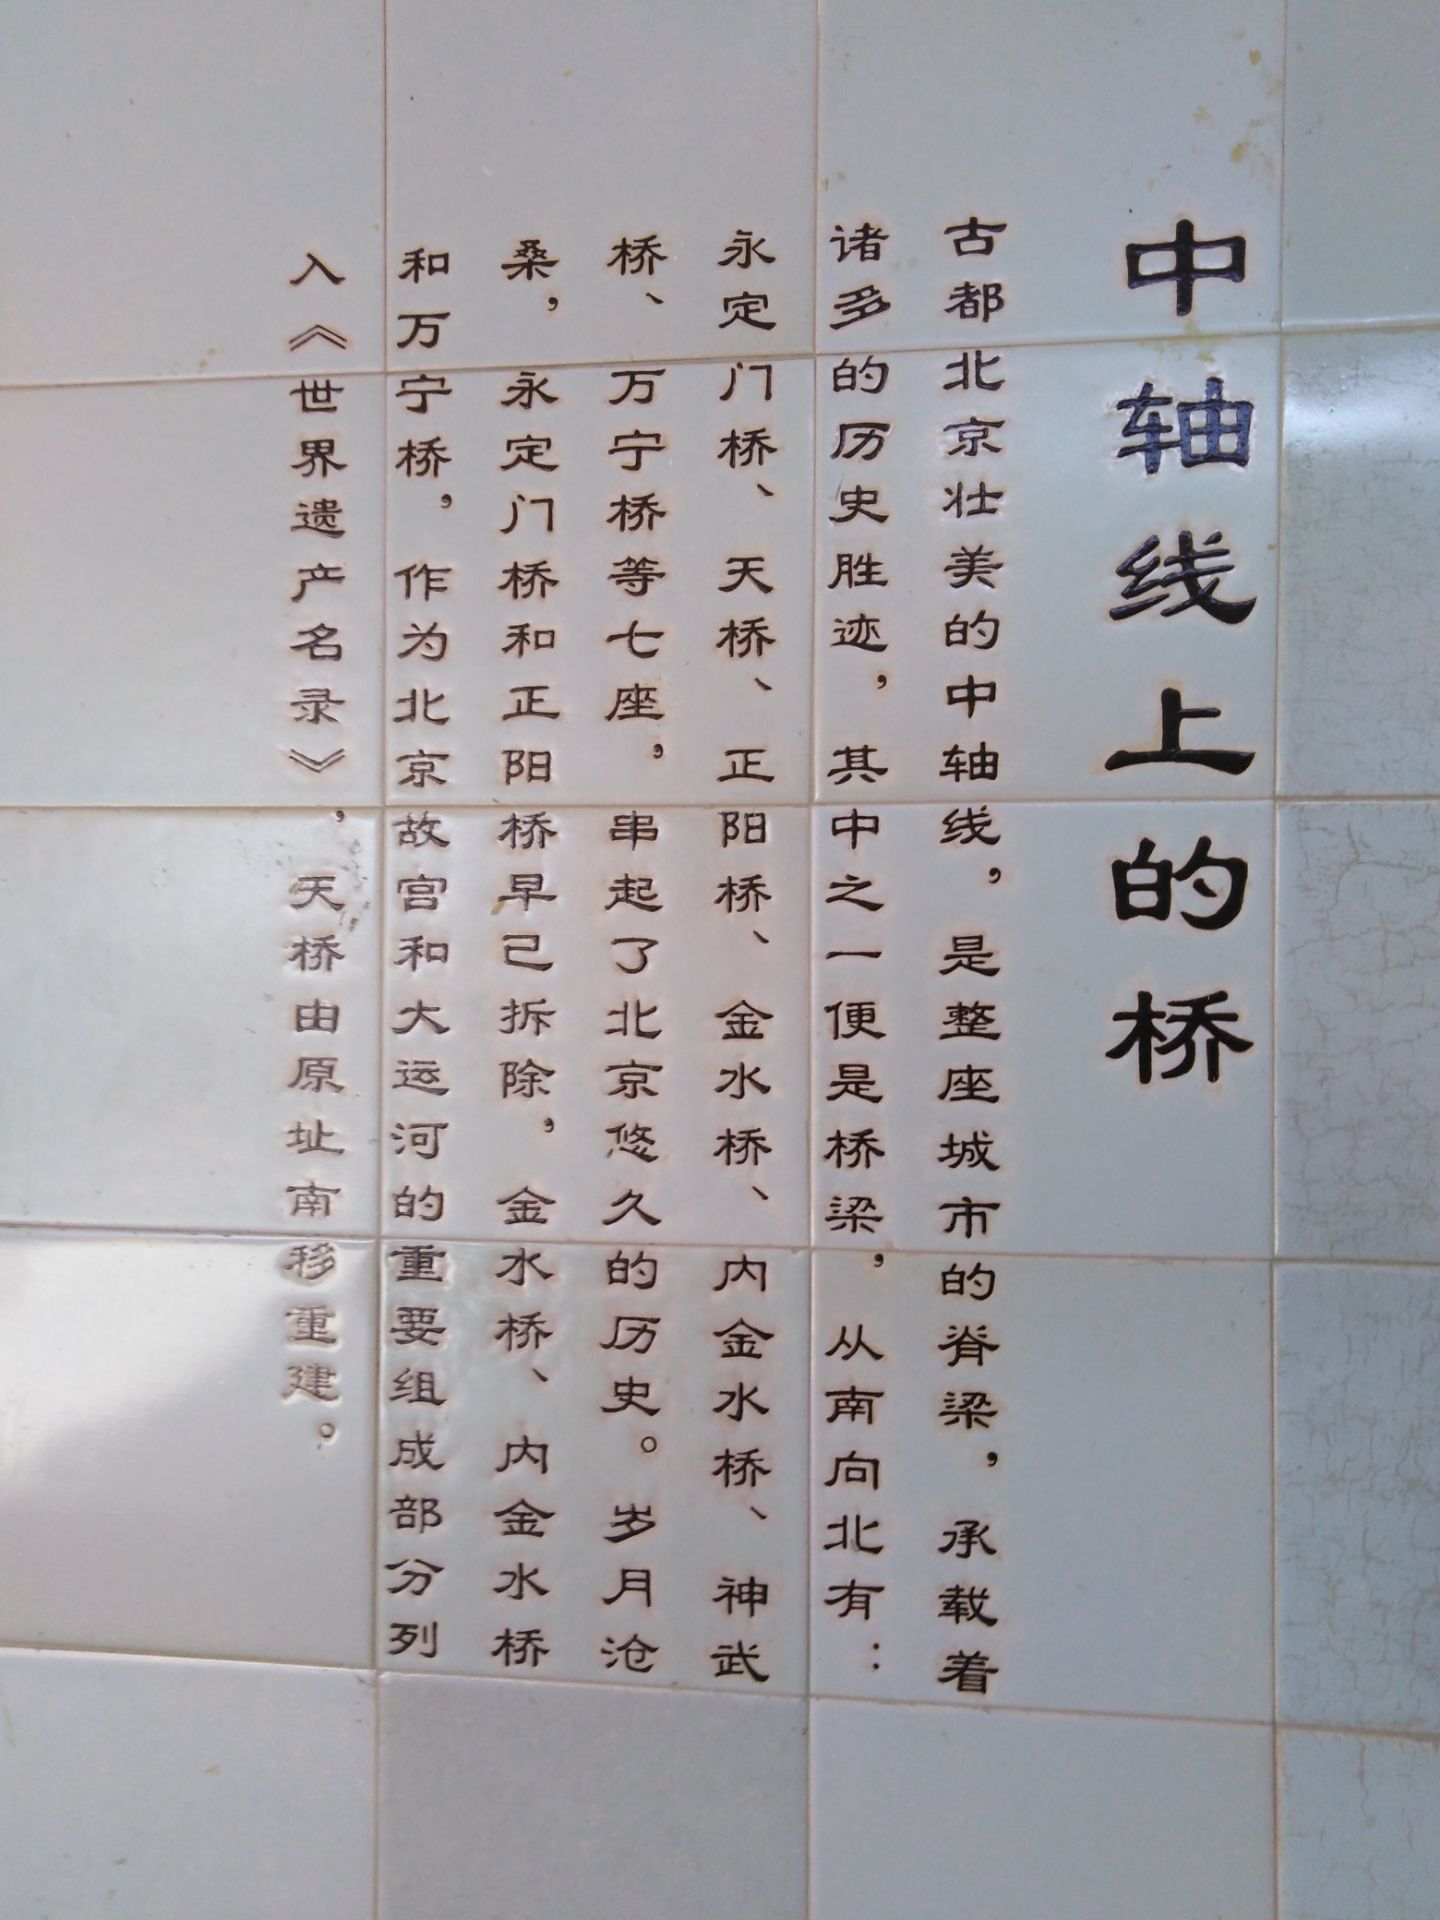 中轴线上的桥
古都北京壮美的中轴线，是整座城市的脊梁，承载着
诸多的历史胜迹，其中之一便是桥梁，从南向北有：
永定门桥、天桥、正阳桥、金水桥、内金水桥、神武
桥、万宁桥等七座，串起了北京悠久的历史。岁月沧
桑，永定门桥和正阳桥早已拆除，金水桥、内金水桥
和万宁桥，作为北京故宫和大运河的重要组成部分列
入《世界遗产名录》，天桥由原址南移重建。